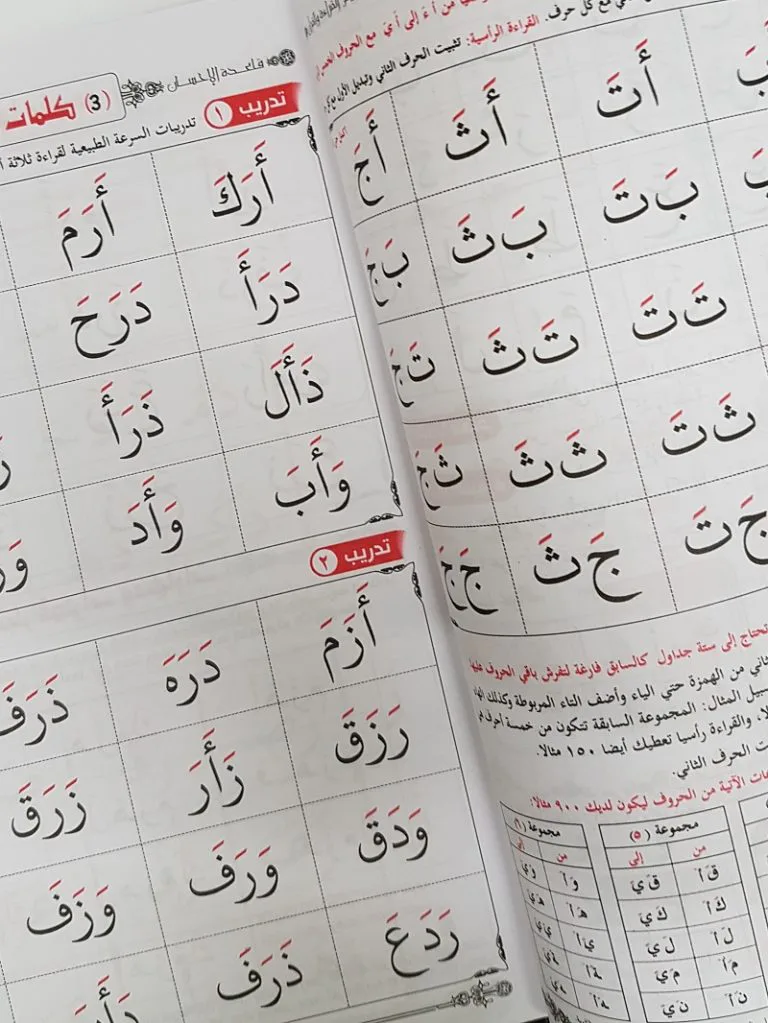 من أَ ءَ إلى أَ يَ مع الحروف
مع كل حرف. القراءة الرأسية: تثبيت الحرف الثاني وتبديل الأول
أَ تَ أَ ثَ أَ جَ
بَ تَ بَ ثَ بَ جَ
تَ تَ تَ ثَ تَ جَ
ثَ تَ ثَ ثَ ثَ جَ
جَ تَ جَ ثَ جَ جَ
تحتاج إلى ستة جداول كالسابق فارغة لتفرش باقي الحروف عليها
من الهمزة حتي الياء وأضف التاء المربوطة وكذلك
سبيل المثال: المجموعة السابقة تتكون من خمسة أحرف
والقراءة رأسيا تعطيك أيضا ١٥٠ مثالا.
الحرف الثاني.
الآتية من الحروف ليكون لديك ٩٠٠ مثالا:
مجموعة (٥)
من إلى
قَ أَ قَ يَ
كَ أَ كَ يَ
لَ أَ لَ يَ
مَ أَ مَ يَ
نَ أَ نَ يَ
مجموعة (٦)
من إلى
وَ أَ وَ يَ
هَ أَ هَ يَ
يَ أَ يَ يَ
ةَ أَ ةَ يَ
قاعدة الإحسان
(3) كلمات
تدريب ١
تدريبات السرعة الطبيعية لقراءة ثلاثة
أَرَكَ أَرَمَ
دَرَأَ دَرَحَ
ذَأَلَ ذَرَأَ
وَأَبَ وَأَدَ
تدريب ٢
أَزَمَ دَرَهَ ذَرَفَ
رَزَقَ زَأَرَ زَرَقَ
وَدَقَ وَرَفَ وَزَفَ
رَدَعَ ذَرَفَ